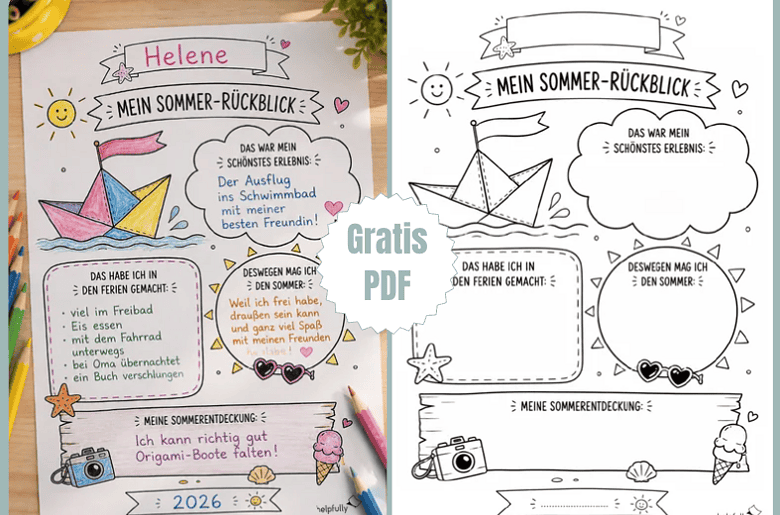 Helene
MEIN SOMMER-RÜCKBLICK
DAS WAR MEIN
SCHÖNSTES ERLEBNIS:
Der Ausflug
ins Schwimmbad
mit meiner
besten Freundin!
DAS HABE ICH IN
DEN FERIEN GEMACHT:
· viel im Freibad
· Eis essen
· mit dem Fahrrad
unterwegs
· bei Oma übernachtet
· ein Buch verschlungen
DESWEGEN MAG ICH
DEN SOMMER:
Weil ich frei habe,
draußen sein kann
und ganz viel Spaß
mit meinen Freunden
MEINE SOMMERENTDECKUNG:
Ich kann richtig gut
Origami-Boote falten!
2026
helpfully
Gratis
PDF
MEIN SOMMER-RÜCKBLICK
DAS WAR MEIN
SCHÖNSTES ERLEBNIS:
DAS HABE ICH IN
DEN FERIEN GEMACHT:
DESWEGEN MAG ICH
DEN SOMMER:
MEINE SOMMERENTDECKUNG:
helpfully